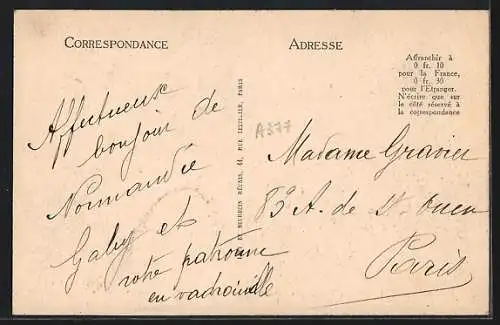 CORRESPONDANCE
ADRESSE
Affranchir à
0 fr. 10
pour la France,
0 fr. 30
pour l'Etranger.
N'écrire que sur
le côté réservé à
la correspondance
A377
Affectueux
bonjour de
Normandie
Gaby et
votre patronne
en vadrouille
RUE PARIS
Madame Gravier
83 A. de St. Ouen
Paris